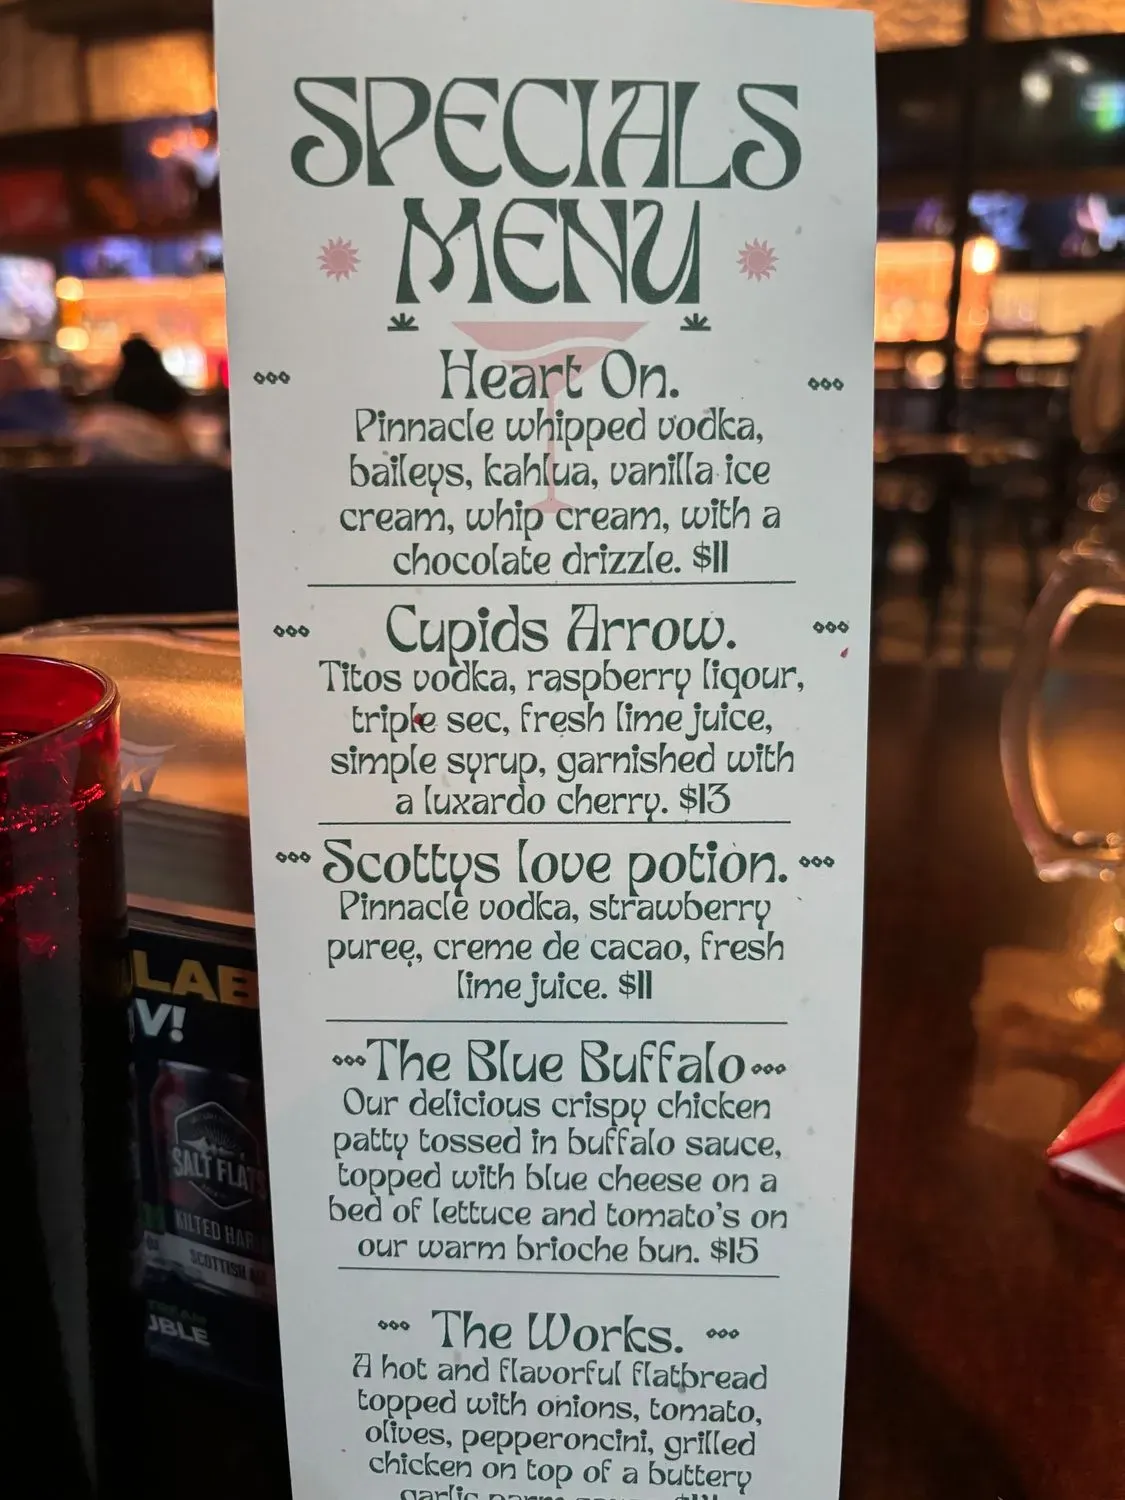 SPECIALS
MENU
Heart On.
Pinnacle whipped vodka,
baileys, kahlua, vanilla ice
cream, whip cream, with a
chocolate drizzle. $11
Cupids Arrow.
Titos vodka, raspberry liqour,
triple sec, fresh lime juice,
simple syrup, garnished with
a luxardo cherry. $13
Scottys love potion.
Pinnacle vodka, strawberry
puree, creme de cacao, fresh
lime juice. $11
The Blue Buffalo
Our delicious crispy chicken
patty tossed in buffalo sauce,
topped with blue cheese on a
bed of lettuce and tomato's on
our warm brioche bun. $15
The Works.
A hot and flavorful flatbread
topped with onions, tomato,
olives, pepperoncini, grilled
chicken on top of a buttery
garlic parm
LAB
V!
SALT FLATS
KILTED HAR
SCOTTISH
UBLE